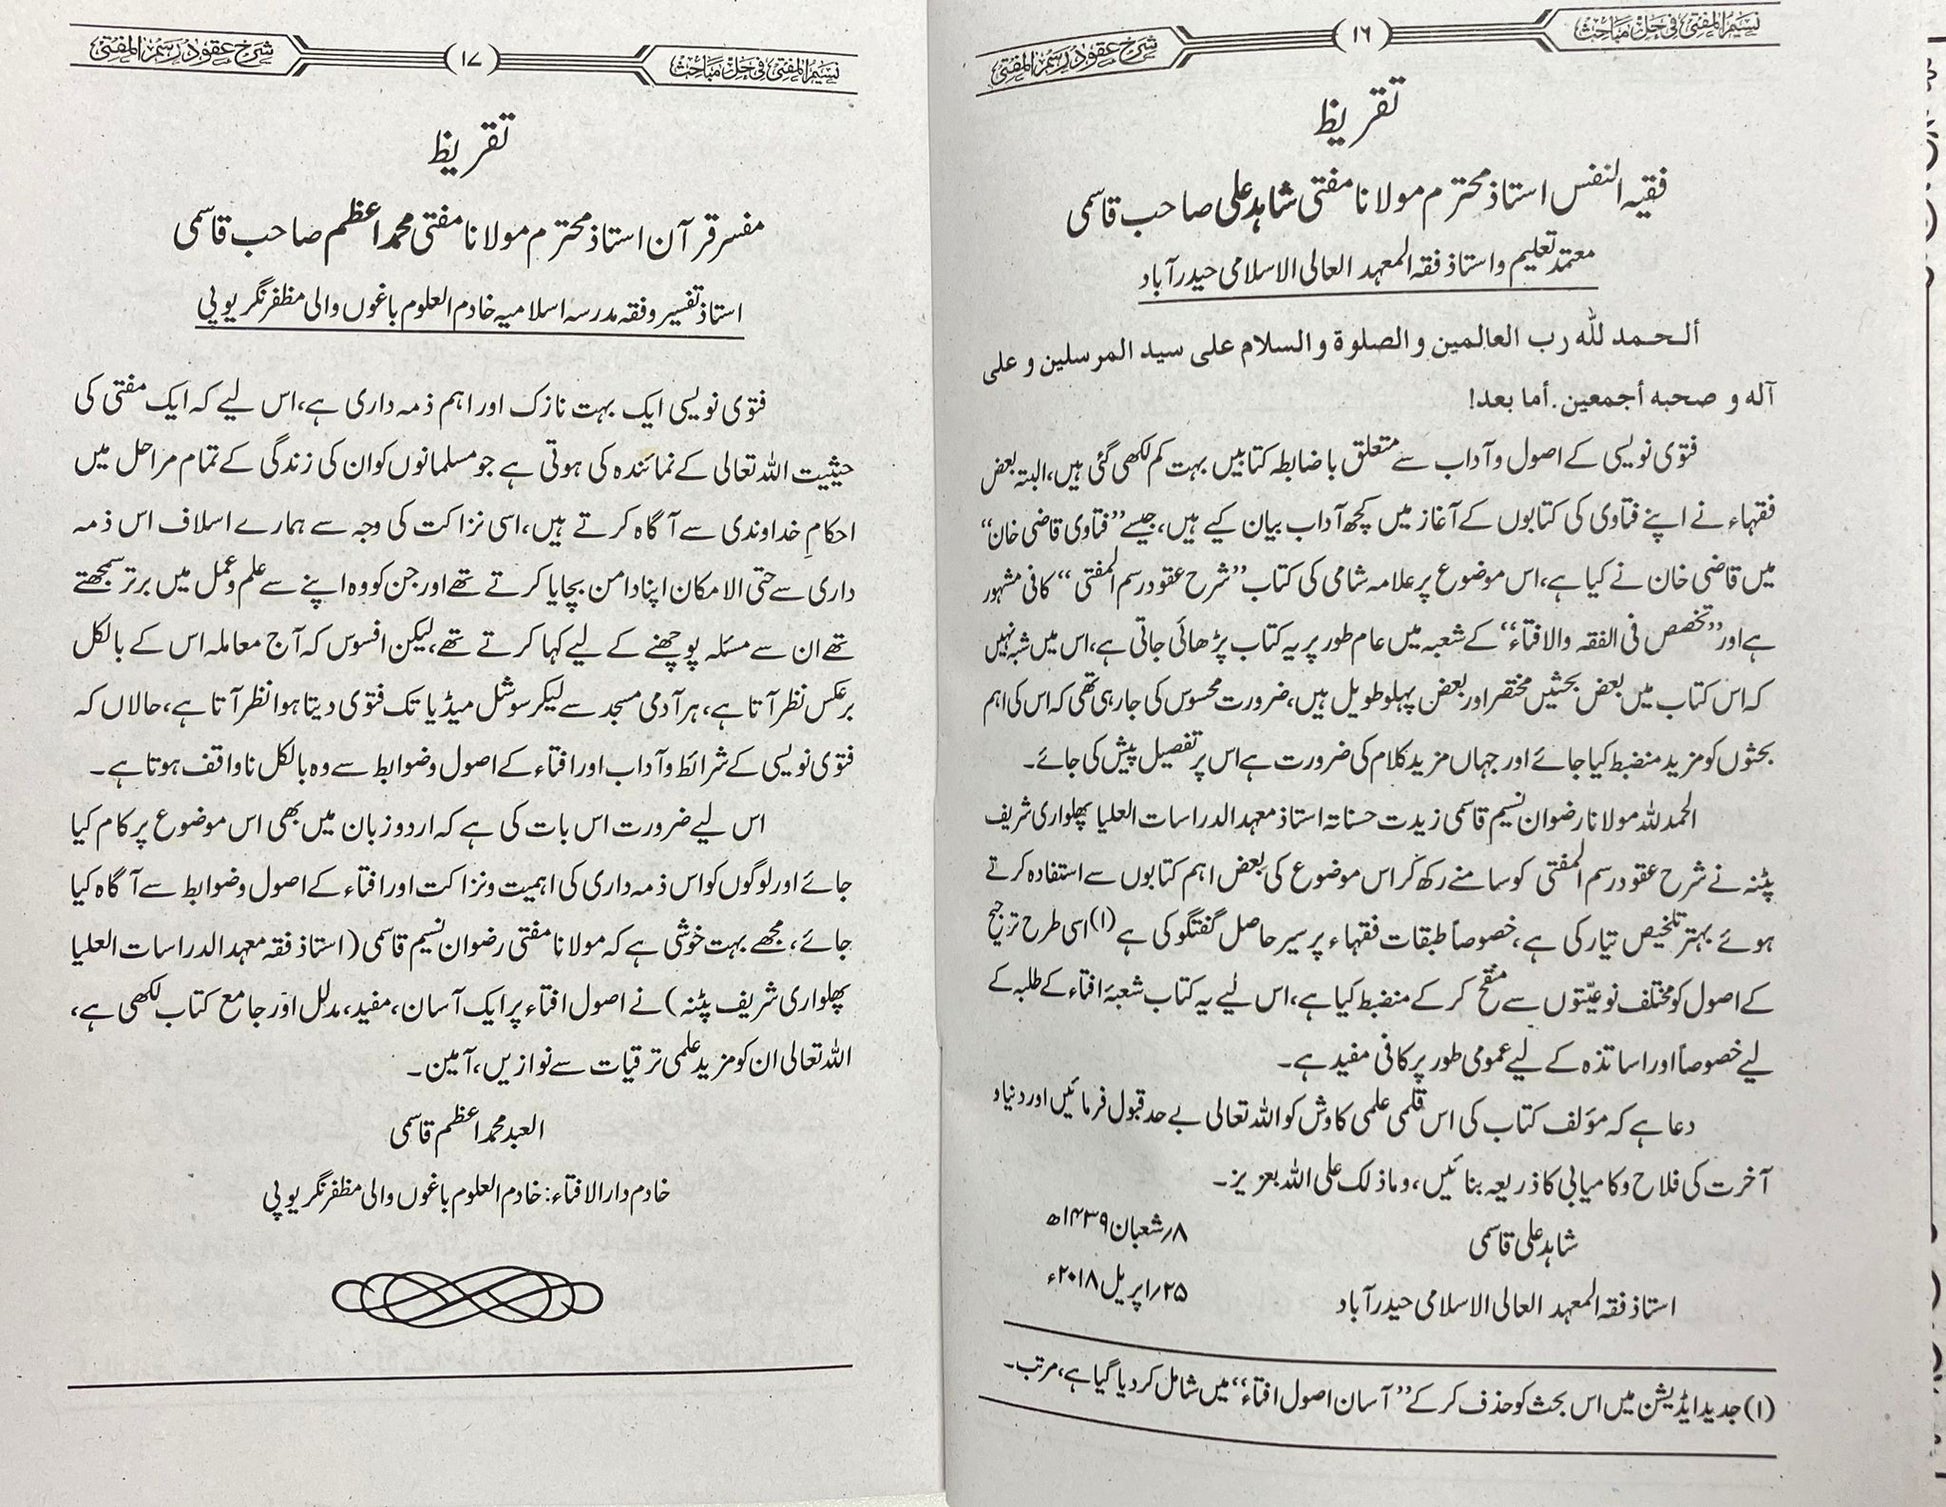 نسیم المفتی فی حل مباحث (۱۶) شرح عقود رسم المفتی
تقریظ
فقیہ النفس استاذ محترم مولانا مفتی شاہد علی صاحب قاسمی
معتمد تعلیم و استاذ فقہ المعہد العالی الاسلامی حیدرآباد
ألحمد للّٰہ رب العالمین و الصلوة و السلام علی سید المرسلین و علی
آله و صحبه أجمعین. أما بعد!
فتوی نویسی کے اصول و آداب سے متعلق باضابطہ کتابیں بہت کم لکھی گئی ہیں، البتہ بعض
فقہاء نے اپنے فتاوی کی کتابوں کے آغاز میں کچھ آداب بیان کیے ہیں، جیسے ”فتاوی قاضی خان“
میں قاضی خان نے کیا ہے، اس موضوع پر علامہ شامی کی کتاب ”شرح عقود رسم المفتی“ کافی مشہور
ہے اور ”تخصص فی الفقہ والافتاء“ کے شعبہ میں عام طور پر یہ کتاب پڑھائی جاتی ہے، اس میں شبہ نہیں
کہ اس کتاب میں بعض بحثیں مختصر اور بعض پہلو طویل ہیں، ضرورت محسوس کی جارہی تھی کہ اس کی اہم
بحثوں کو مزید منضبط کیا جائے اور جہاں مزید کلام کی ضرورت ہے اس پر تفصیل پیش کی جائے۔
الحمد للہ مولانا رضوان نسیم قاسمی زیدت حسناتہ استاذ معہد الدراسات العلیا پھلواری شریف
پٹنہ نے شرح عقود رسم المفتی کو سامنے رکھ کر اس موضوع کی بعض اہم کتابوں سے استفادہ کرتے
ہوئے بہتر تلخیص تیار کی ہے، خصوصاً طبقات فقہاء پر سیر حاصل گفتگو کی ہے (۱) اسی طرح ترجیح
کے اصول کو مختلف نوعیّتوں سے منقح کر کے منضبط کیا ہے، اس لیے یہ کتاب شعبۂ افتاء کے طلبہ کے
لیے خصوصاً اور اساتذہ کے لیے عمومی طور پر کافی مفید ہے۔
دعا ہے کہ مؤلف کتاب کی اس قلمی علمی کاوش کو اللہ تعالی بے حد قبول فرمائیں اور دنیا و
آخرت کی فلاح و کامیابی کا ذریعہ بنائیں، وماذلک علی اللہ بعزیز۔
شاہد علی قاسمی ۸؍شعبان ۱۴۳۹ھ
استاذ فقہ المعہد العالی الاسلامی حیدرآباد ۲۵؍اپریل ۲۰۱۸ء
(۱) جدید ایڈیشن میں اس بحث کو حذف کر کے ”آسان اصول افتاء“ میں شامل کر دیا گیا ہے، مرتب۔
نسیم المفتی فی حل مباحث (۱۷) شرح عقود رسم المفتی
تقریظ
مفسر قرآن استاذ محترم مولانا مفتی محمد اعظم صاحب قاسمی
استاذ تفسیر و فقہ مدرسہ اسلامیہ خادم العلوم باغوں والی مظفرنگر یوپی
فتوی نویسی ایک بہت نازک اور اہم ذمہ داری ہے، اس لیے کہ ایک مفتی کی
حیثیت اللہ تعالی کے نمائندہ کی ہوتی ہے جو مسلمانوں کو ان کی زندگی کے تمام مراحل میں
احکامِ خداوندی سے آگاہ کرتے ہیں، اسی نزاکت کی وجہ سے ہمارے اسلاف اس ذمہ
داری سے حتی الامکان اپنا دامن بچایا کرتے تھے اور جن کو وہ اپنے سے علم و عمل میں برتر سمجھتے
تھے ان سے مسئلہ پوچھنے کے لیے کہا کرتے تھے، لیکن افسوس کہ آج معاملہ اس کے بالکل
برعکس نظر آتا ہے، ہر آدمی مسجد سے لیکر سوشل میڈیا تک فتوی دیتا ہوا نظر آتا ہے، حالاں کہ
فتوی نویسی کے شرائط و آداب اور افتاء کے اصول و ضوابط سے وہ بالکل ناواقف ہوتا ہے۔
اس لیے ضرورت اس بات کی ہے کہ اردو زبان میں بھی اس موضوع پر کام کیا
جائے اور لوگوں کو اس ذمہ داری کی اہمیت و نزاکت اور افتاء کے اصول و ضوابط سے آگاہ کیا
جائے، مجھے بہت خوشی ہے کہ مولانا مفتی رضوان نسیم قاسمی (استاذ فقہ معہد الدراسات العلیا
پھلواری شریف پٹنہ) نے اصول افتاء پر ایک آسان، مفید، مدلل اور جامع کتاب لکھی ہے،
اللہ تعالی ان کو مزید علمی ترقیات سے نوازیں، آمین۔
العبد محمد اعظم قاسمی
خادم دارالافتاء: خادم العلوم باغوں والی مظفرنگر یوپی